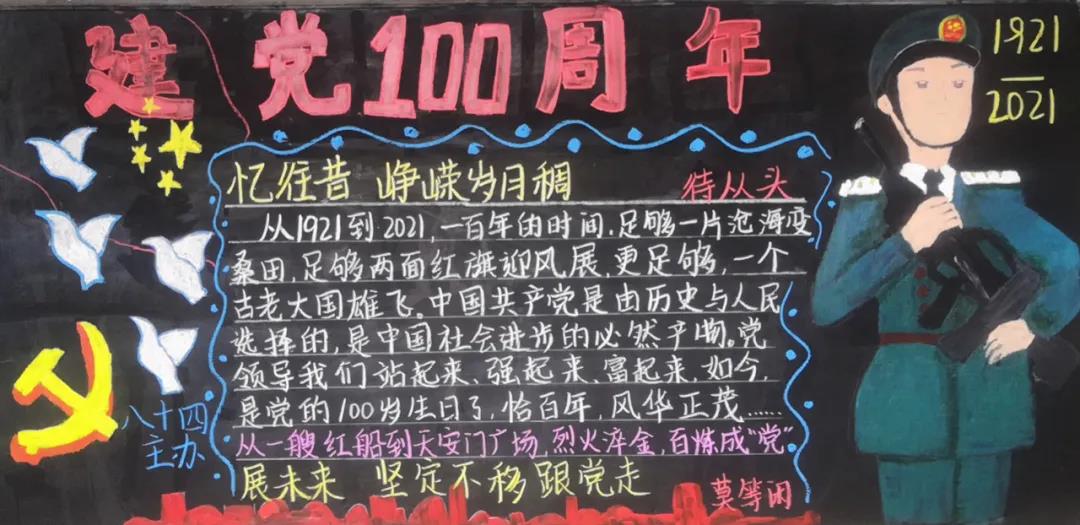 建党100周年
1921
2021
忆往昔 峥嵘岁月稠
待从头
从1921到2021,一百年的时间.足够一片沧海变
桑田,足够两面红旗迎风展,更足够,一个
古老大国雄飞。中国共产党是由历史与人民
选择的,是中国社会进步的必然产物。党
领导我们站起来、强起来、富起来,如今,
是党的100岁生日了,恰百年,风华正茂……
从一艘红船到天安门广场,烈火淬金,百炼成“党”
展未来 坚定不移跟党走
莫等闲
八十四
主办